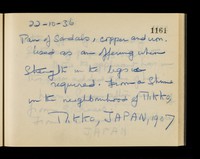 22-10-36
1161
Pair of Sandals, copper and iron.
Used as an offering when
Strength in the legs is
required. From a Shrine
in the neighborhood of Nikko,
NIKKO, JAPAN, 1907
JAPAN